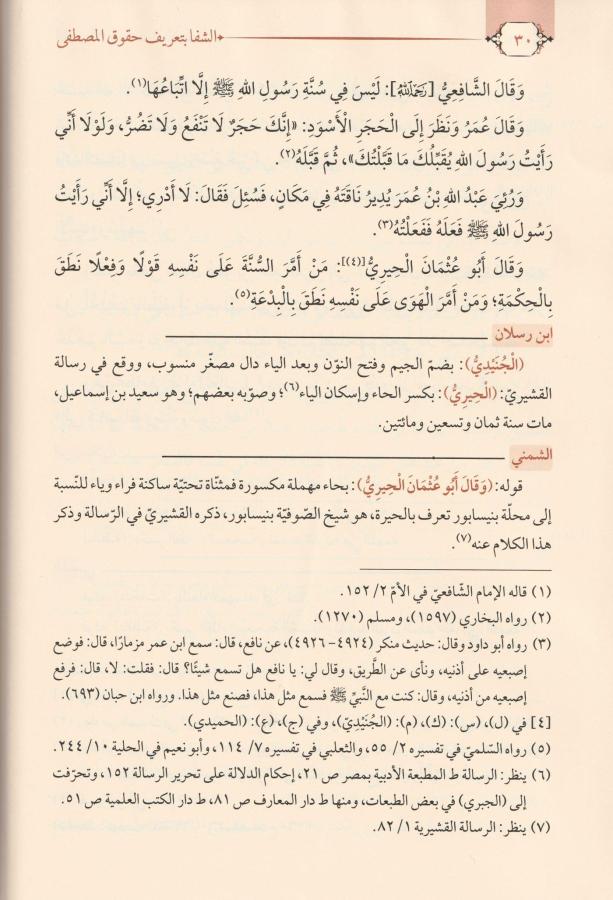 ٣٠
الشفا بتعريف حقوق المصطفى
وَقَالَ الشَّافِعِيُّ [رَحِمَهُ اللهُ]: لَيْسَ فِي سُنَّةِ رَسُولِ اللهِ ﷺ إِلَّا اتِّبَاعُهَا(١).
وَقَالَ عُمَرُ وَنَظَرَ إِلَى الْحَجَرِ الْأَسْوَدِ: «إِنَّكَ حَجَرٌ لَا تَنْفَعُ وَلَا تَضُرُّ، وَلَوْلَا أَنِّي
رَأَيْتُ رَسُولَ اللهِ يُقَبِّلُكَ مَا قَبَّلْتُكَ»، ثُمَّ قَبَّلَهُ(٢).
وَرُئِيَ عَبْدُ اللهِ بْنُ عُمَرَ يُدِيرُ نَاقَتَهُ فِي مَكَانٍ، فَسُئِلَ فَقَالَ: لَا أَدْرِي؛ إِلَّا أَنِّي رَأَيْتُ
رَسُولَ اللهِ ﷺ فَعَلَهُ فَفَعَلْتُهُ(٣).
وَقَالَ أَبُو عُثْمَانَ الْحِيرِيُّ[(٤)]: مَنْ أَمَّرَ السُّنَّةَ عَلَى نَفْسِهِ قَوْلًا وَفِعْلًا نَطَقَ
بِالْحِكْمَةِ؛ وَمَنْ أَمَّرَ الْهَوَى عَلَى نَفْسِهِ نَطَقَ بِالْبِدْعَةِ(٥).
ابن رسلان
(الْجُنَيْدِيُّ): بضمّ الجيم وفتح النوّن وبعد الياء دال مصغّر منسوب، ووقع في رسالة
القشيريّ: (الْحِيرِيُّ): بكسر الحاء وإسكان الياء(٦)؛ وصوّبه بعضهم؛ وهو سعيد بن إسماعيل،
مات سنة ثمان وتسعين ومائتين.
الشمني
قوله: (وَقَالَ أَبُو عُثْمَانَ الْحِيرِيُّ): بحاء مهملة مكسورة فمثنّاة تحتيّة ساكنة فراء وياء للنّسبة
إلى محلّة بنيسابور تعرف بالحيرة، هو شيخ الصّوفيّة بنيسابور، ذكره القشيريّ في الرّسالة وذكر
هذا الكلام عنه(٧).
(١) قاله الإمام الشّافعيّ في الأمّ ٢/ ١٥٢.
(٢) رواه البخاري (١٥٩٧)، ومسلم (١٢٧٠).
(٣) رواه أبو داود وقال: حديث منكر (٤٩٢٤- ٤٩٢٦)، عن نافع، قال: سمع ابن عمر مزمارًا، قال: فوضع
إصبعيه على أذنيه، ونأى عن الطَّريق، وقال لي: يا نافع هل تسمع شيئًا؟ قال: فقلت: لا، قال: فرفع
إصبعيه من أذنيه، وقال: كنت مع النَّبيِّ ﷺ فسمع مثل هذا، فصنع مثل هذا. ورواه ابن حبان (٦٩٣).
[٤] في (ل)، (س): (ك)، (م): (الجُنَيْدِيّ)، وفي (ج)، (ع): (الحميدي).
(٥) رواه السّلميّ في تفسيره ٢/ ٥٥، والثعلبي في تفسيره ٧/ ١١٤، وأبو نعيم في الحلية ١٠/ ٢٤٤.
(٦) ينظر: الرسالة ط المطبعة الأدبية بمصر ص ٢١، إحكام الدلالة على تحرير الرسالة ١٥٢، وتحرّفت
إلى (الجبري) في بعض الطبعات، ومنها ط دار المعارف ص ٨١، ط دار الكتب العلمية ص ٥١.
(٧) ينظر: الرسالة القشيرية ١/ ٨٢.